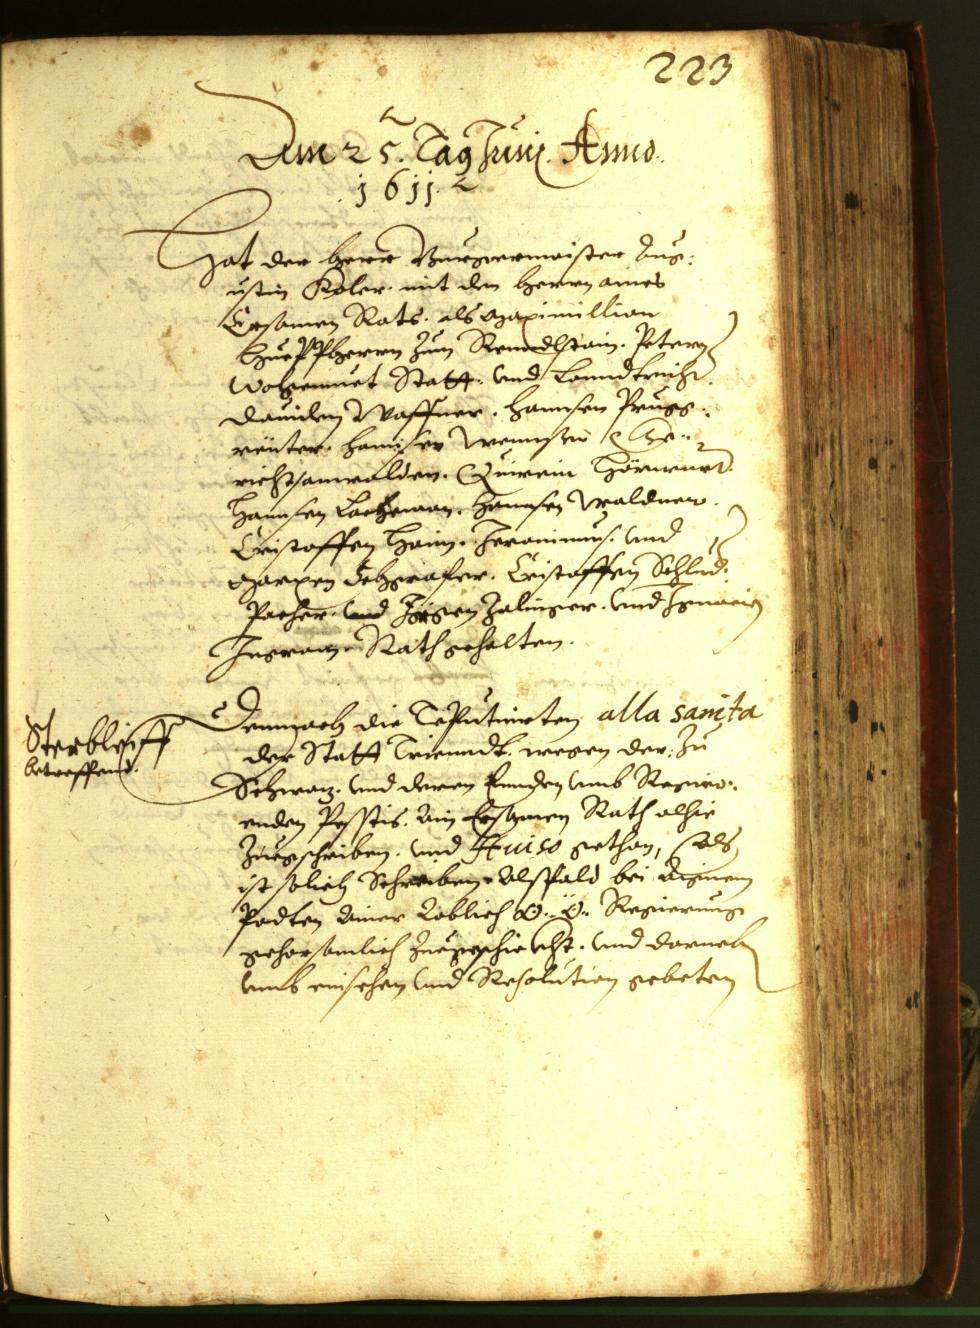 223
Am 25. Tag Junj. Anno.
1611.
Hat der herr Burgermaister Aug:
ustin Koler. mit den herrn aines
Ersamen Rats. als Maximillian
Hueppherrn zum Rendlstain. Petern
Wolgemuet Statt: und Lanndtricht.
Dauiden Waffner. Hannsen Prugg:
reüter. Hannsen
richtsanwalden. Quirein Hörwart.
Hannsen Lachman. Hannsen Waldner.
Cristoffen Haim. Jeronimus. und
Marxen Eebhgrafer. Cristoffen Schlud:
Pacher. und Jörgen Zalinger. und
Ingram. Rath gehalten.
Sterbleiff
betreffend.
Demnach die Deputierten alla sanita
der Statt Trienndt. wegen der. Zu
Schwaz. und deren Ennden umb Regier:
enden Pesstis. Ain Ersamen Rath alhie
zuegschriben. und Auiso gethan, Als
ist solich Schreiben. Alspald bei Aignem
Podten Ainer Loblich O: Ö: Regierung
gehorsamlich zuegeschickht. und darneben
umb einsehen und Resolution gebeten